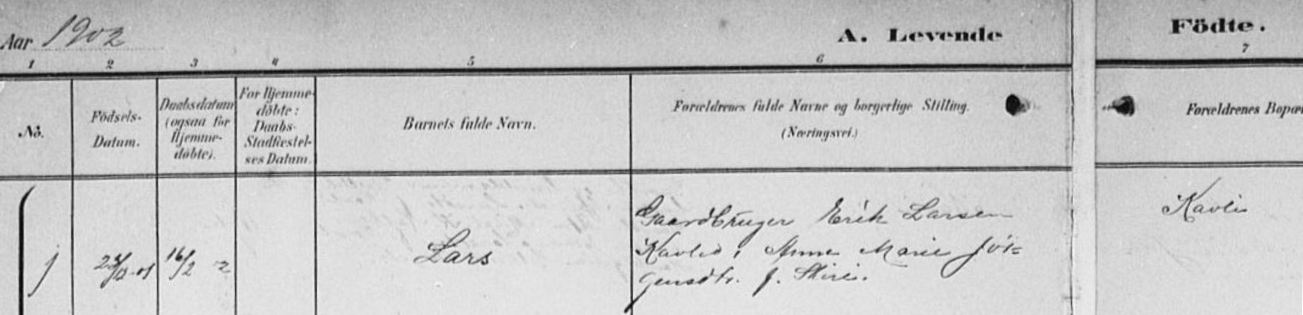 Aar 1902
A. Levende
Födte.
1 2 3 4 5 6 7
No.
Födsels-
Datum.
Daabsdatum
(ogsaa for
Hjemme-
döbte).
For Hjemme-
döbte:
Daabs-
Stadfæstel-
ses Datum.
Barnets fulde Navn.
Forældrenes fulde Navne og borgerlige Stilling.
(Næringsvei.)
Forældrenes Bopæ
1
16/2 -2
Lars
Gaardbruger Erik Larsen
Kavlie, Anne Marie Jör-
gensdtr. f. Skire.
Kavli